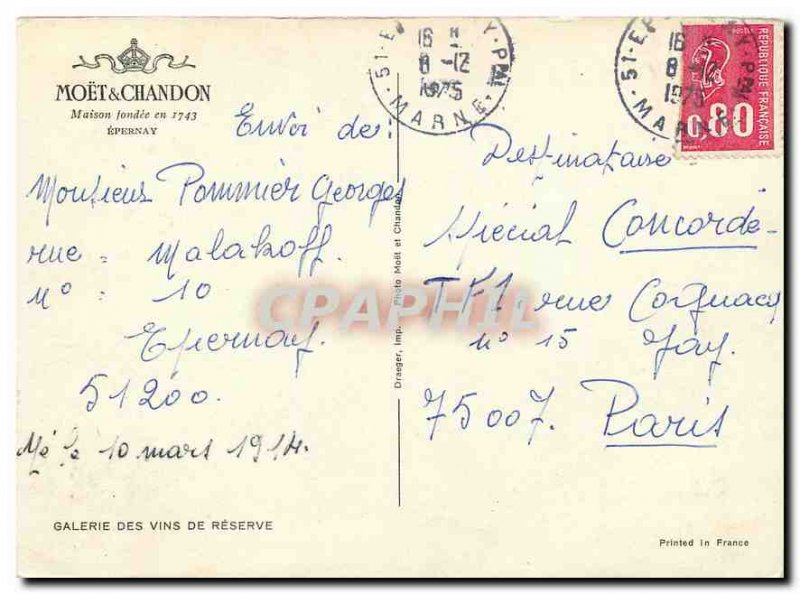 MOËT & CHANDON
Maison fondée en 1743
ÉPERNAY
Envoi de:
Monsieur Pommier Georges
rue = Malakoff.
N° = 10
Epernay.
51200.
Né le 10 mars 1914.
GALERIE DES VINS DE RÉSERVE
Draeger, Imp. Photo Moët et Chandon
16 H
8-12
1975
51-E
MARNE
16
8-12
1975
51-EP
MARNE
POSTES
RÉPUBLIQUE FRANÇAISE
0,80
Destinataire
Spécial Concorde-
TF1, rue Cognacq
N° 15 Jay.
75007. Paris
Printed in France
CPAPHIL